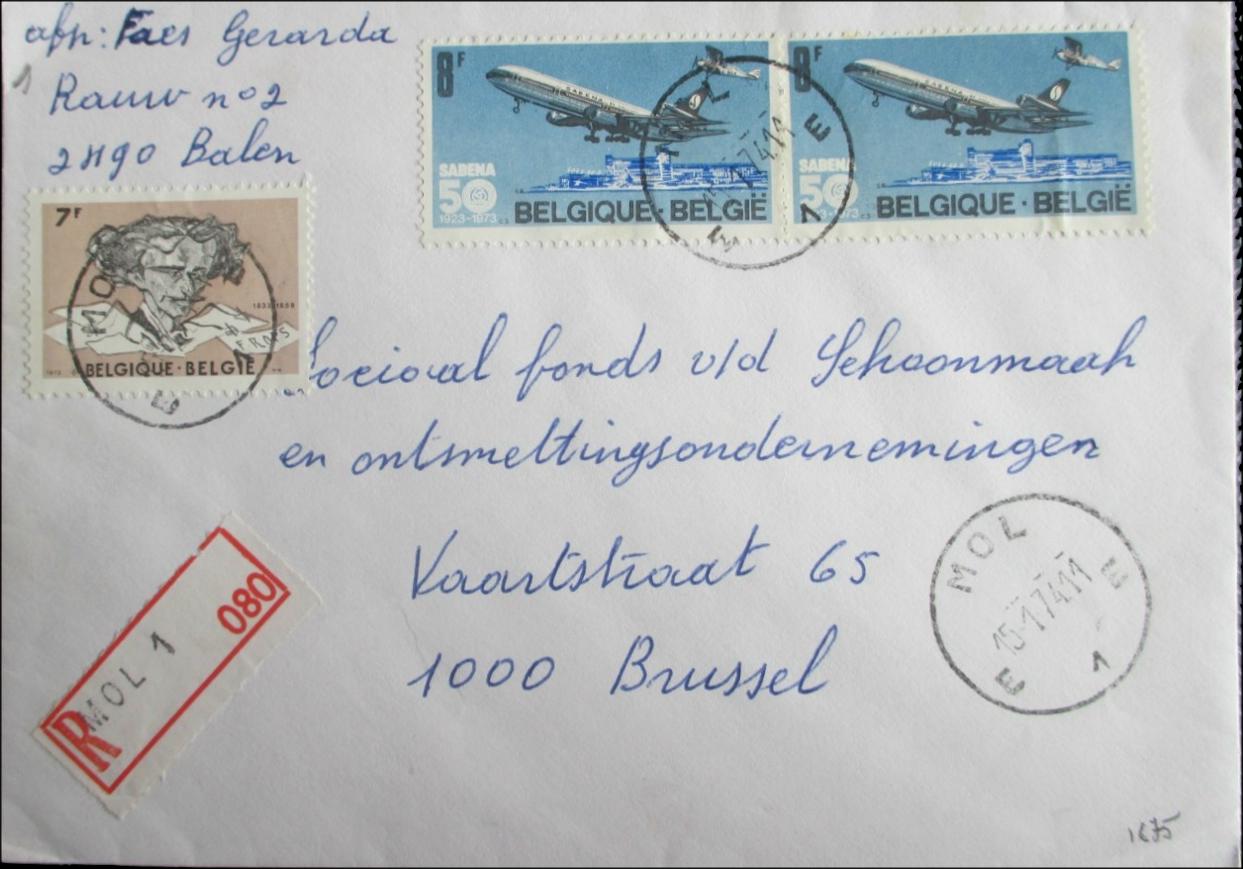 afz: Faes Gerarda
Rauw no 2
2490 Balen
8F
SABENA
SABENA
50
1923-1973
BELGIQUE · BELGIË
8F
SABENA
SABENA
50
1923-1973
BELGIQUE · BELGIË
E 1 E
7F
1833-1898
F. ROPS
1973
BELGIQUE · BELGIË
MOL
E 1
Sociaal fonds v/d Schoonmaak
en ontsmettingsondernemingen
Vaartstraat 65
1000 Brussel
MOL
15-1.74.11
E 1 E
R MOL 1 080
1675